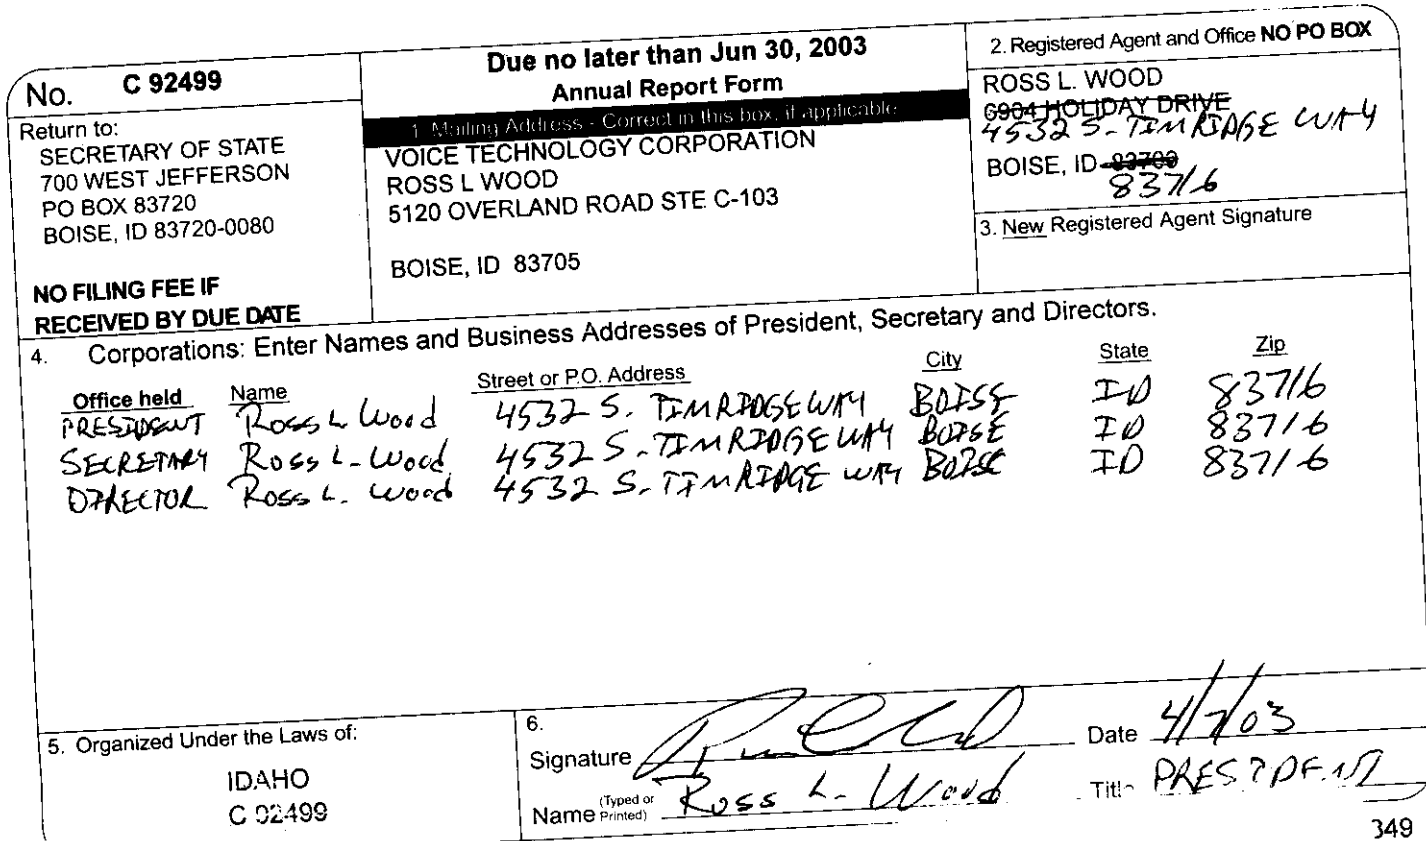 No. C 92499
Return to:
SECRETARY OF STATE
700 WEST JEFFERSON
PO BOX 83720
BOISE, ID 83720-0080
NO FILING FEE IF
RECEIVED BY DUE DATE
Due no later than Jun 30, 2003
Annual Report Form
1. Mailing Address - Correct in this box, if applicable
VOICE TECHNOLOGY CORPORATION
ROSS L WOOD
5120 OVERLAND ROAD STE C-103
BOISE, ID 83705
2. Registered Agent and Office NO PO BOX
ROSS L. WOOD
6904 HOLIDAY DRIVE
4532 S. TIMRIDGE WAY
BOISE, ID 83709
83716
3. New Registered Agent Signature
4. Corporations: Enter Names and Business Addresses of President, Secretary and Directors.
Office held Name Street or P.O. Address City State Zip
PRESIDENT Ross L Wood 4532 S. TIMRIDGE WAY BOISE ID 83716
SECRETARY Ross L. Wood 4532 S. TIMRIDGE WAY BOISE ID 83716
DIRECTOR Ross L. Wood 4532 S. TIMRIDGE WAY BOISE ID 83716
5. Organized Under the Laws of:
IDAHO
C 92499
6.
Signature Date 4/7/03
Name (Typed or Printed) Ross L. Wood Title PRESIDENT
349